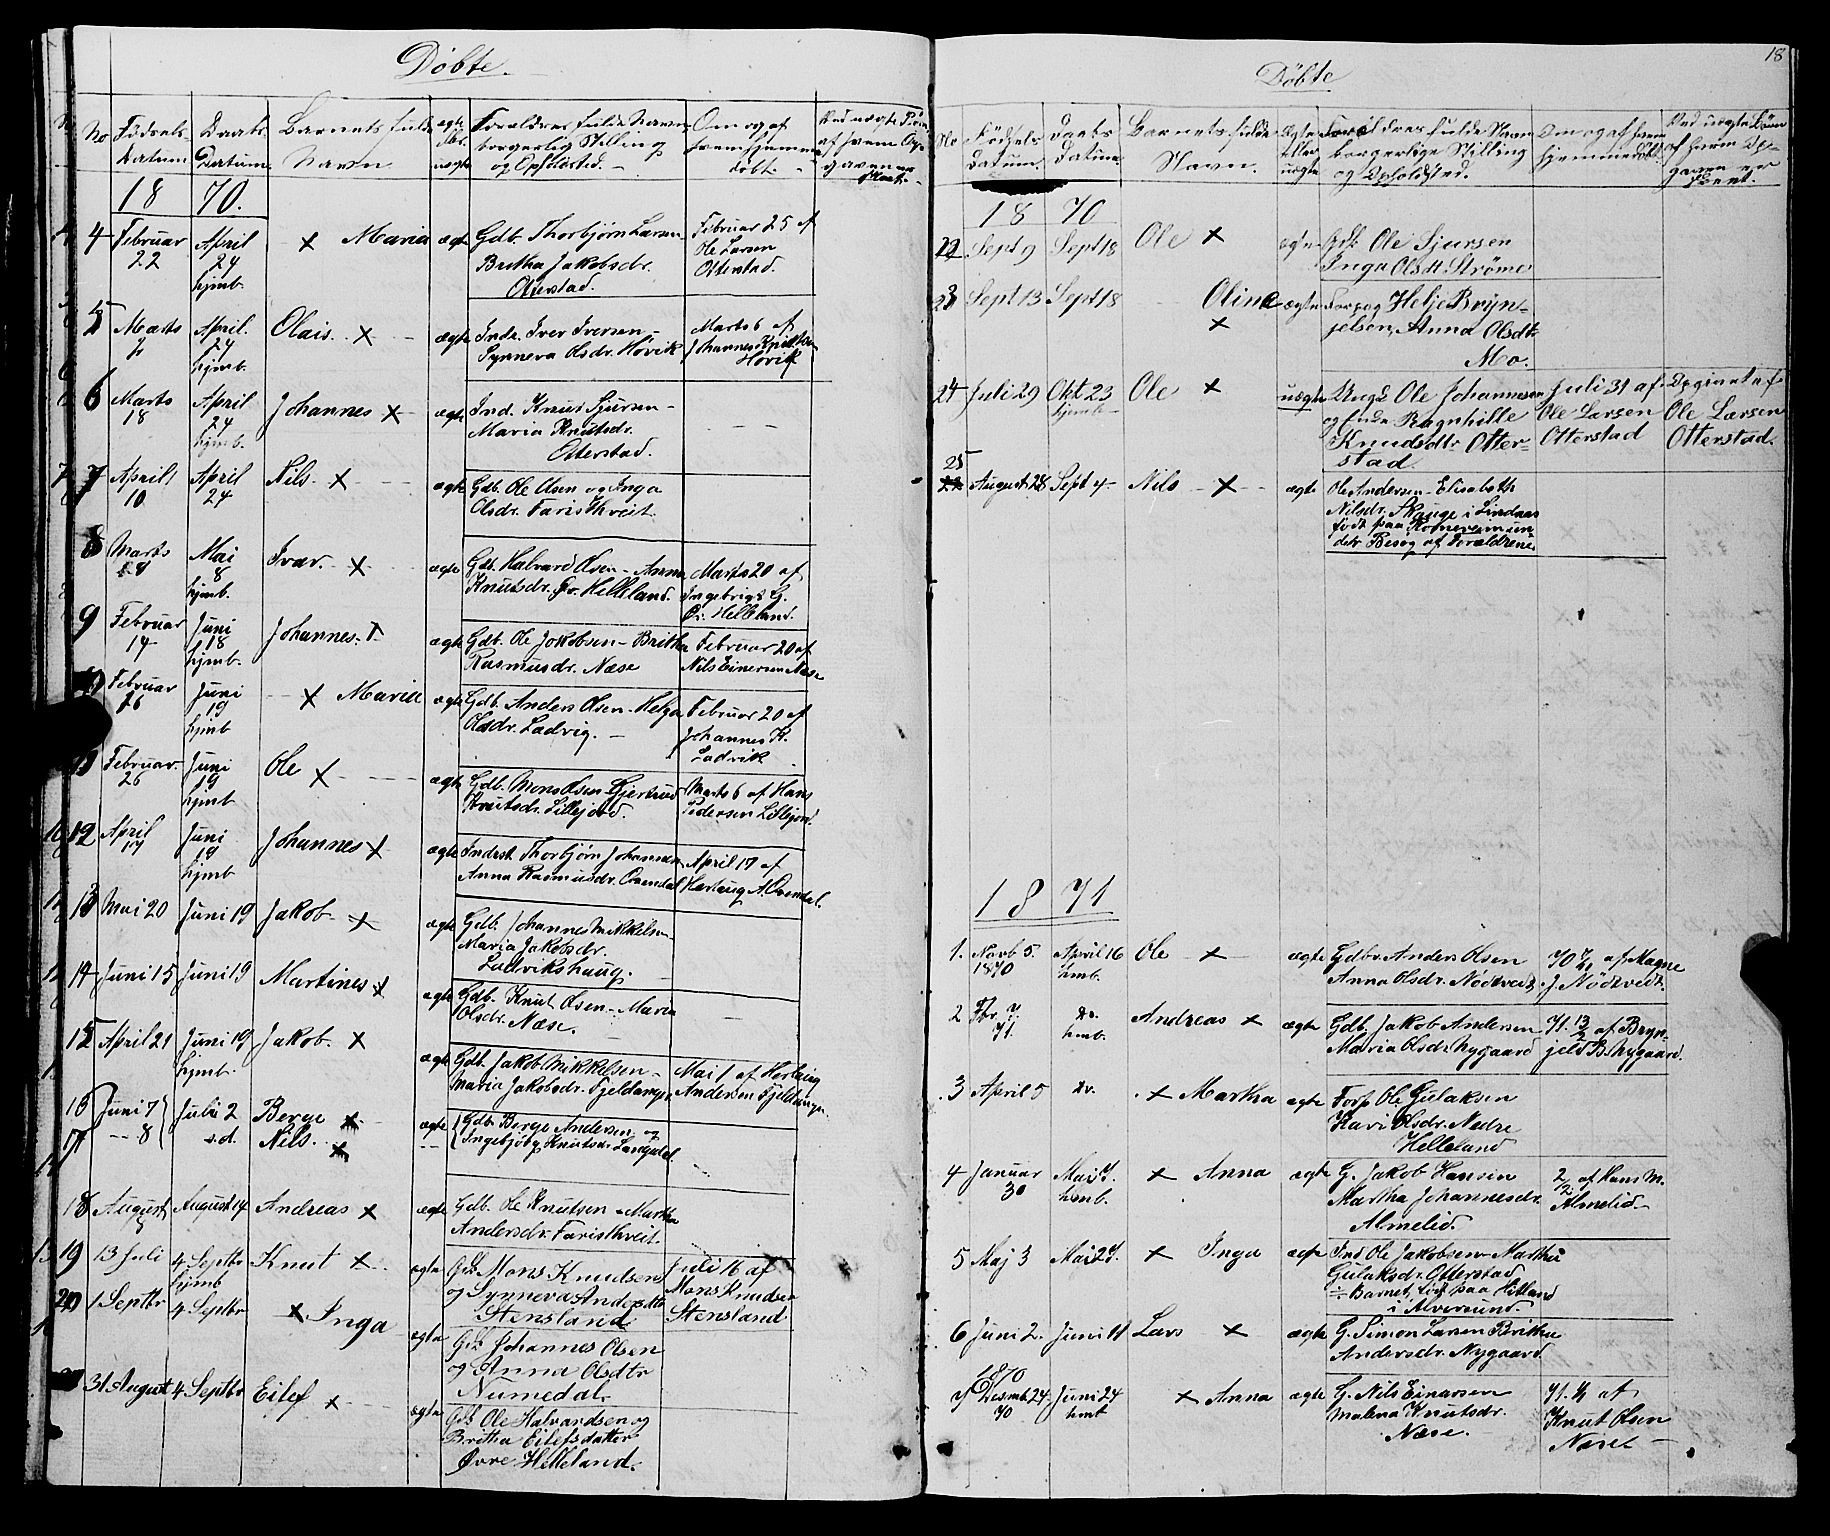 Döbte.
No
Fødsels
Datum
Daabs
Datum.
Barnets fulde
Navn
ægte
eller
uægte
Forældres fulde Navn
borgerlig Stilling og
og Opholdsted.
Om og af
hvem hjemme
døbt.
18 70.
4 Februar 22 April 24 hjmb. × Maria ægte Gdb. Thorbjørn Larsen Februar 25 af
Britha Jakobsdr. Ole Larsen
Otterstad. Otterstad.
5 Marts April. 24 hjmb. Olais. × ægte Inds. Iver Iversen Marts 6 af
Synneva Olsdr. Høvik Johannes Knutsen
Høvik
6 Marts 18 April 24 hjmb. Johannes × ægte Ind. Knut Sjursen
Maria Knutsdr.
Otterstad.
7 April 10 April 24 Nils. × ægte Gdb. Ole Olsen og Inga
Olsdr. Faristhveit.
8 Marts Mai 8 hjmb. Ivar. × ægte Gdb. Halvard Olsen - Anna Marts 20 af
Knutsdr. Øv. Helleland. Ingebrigt G.
Øv. Helleland.
9 Februar 14 Juni 18 hjmb. Johannes. × ægte Gdb. Ole Jakobsen - Britha Februar 20 af
Rasmusdr. Næse Nils Einersen Næse
10 Februar 16 Juni 19 hjmb × Maria ægte Gdb. Anders Olsen - Helga Februar 20 af
Olsdr. Ladvig. Johannes K.
Ladvik
11 Februar. 26 Juni 19 hjmb Ole × ægte Gdb. Mons Olsen Gjertrud Marts 6 af Hans
Knutsdr. Lillejord. Pedersen Lillejord.
12 April 17 Juni 19 hjmb Johannes × ægte Inderst Thorbjørn Johannesen April 17 af
Anna Rasmusdr. Ovendal Herlaug A. Ovendal.
13 Mai 20 Juni 19 Jakob × ægte Gdb. Johannes Mikkelsen
Maria Jakobsdr.
Ladvikshaug.
14 Juni 15 Juni 19 Martines × ægte Gdb. Knut Olsen - Maria
Olsdr. Næse.
15 April 21 Juni 19 hjmb. Jakob. × ægte Gdb. Jakob Mikkelsen Mai 1 af Herlaug
Maria Jakobsdr. Fjeldanger Andersen Fjeldanger
16 Juni 7 Juli 2 Berge × ægte Gdb. Berge Andersen og
17 - - 8 s.d. Nils. × - - Ingebjørg Knutsdr. Langedal.
18 August August 14 Andreas × ægte Gdb. Ole Knutsen - Martha
Andersdr. Faristhveit.
19 13 Juli 4 Septbr hjmb Knut × ægte Gdb Mons Knudsen Juli 16 af
og Synneva Andersdtr Mons Knudsen
Stensland Stensland
20 1 Septbr 4 Septbr × Inga ægte Gdb Johannes Olsen
og Anna Olsdtr
Numedal.
21 31 August 4 Septbr Eilef × ægte Gdb Ole Halvardsen og
Britha Eilefsdatter
Øvre Helleland.
18
Döbte
No
Fødsels
datum.
Daabs
datum.
Barnets fulde
Navn.
Ægte
eller
uægte
Forældres fulde Navn
borgerlige Stilling
og Opholdsted.
Om og af hvem
hjemmedøbt.
18 70
22 Sept 9 Sept 18 Ole × ægte Gdb Ole Sjursen
Inga Olsdtr Strömer
23 Sept 13 Sept 18 Oline × ægte Forpag Helje Bryn-
jelsen, Anna Olsdtr
Mo.
24 Juli 29 Okt 23 hjemb Ole × uægte Ungk Ole Johannesen Juli 31 af Opgivet af
og Enke Ragnhilde Ole Larsen Ole Larsen
Knudsdtr Otter- Otterstad Otterstad.
stad
25 August 28 Sept 4 Nils × ægte Ole Andersen - Elisabeth
Nilsdr. Skauge i Lindaas
født paa Romereim un-
der Besøg af Forældrene
1871
1. Novb 5. 1870 April 16 hmb. Ole × ægte Gdbr. Anders Olsen af Magne
Anna Olsdr. Nödtveidt J. Nödtveidt.
2 Fbr 7. 71. do. hmb. Andreas × ægte Gdb. Jakob Andersen 71. 13/2 af Bryn-
Maria Olsdr. Nygaard jeld B. Nygaard.
3 April 5 do. × Martha ægte Forp Ole Gulaksen
Kari Olsdr. Nedre
Helleland
4 Januar 30 Mai 7. hmb. × Anna ægte G. Jakob Hansen af Hans M.
Martha Johannesdr. Almelid.
Almelid.
5 Maj 3 Mai 27. × Inga ægte Ind Ole Jakobsen - Martha
Gulaksdr. Otterstad
÷ Barnet født paa Hilland
i Alversund.
6 Juni 2. Juni 11 Lars × ægte G. Simon Larsen Britha
Andersdr. Nygaard.
1870
7 Desmb 24 70 Juni 24 hmt × Anna ægte G. Nils Einarsen 71. 1/1 af
Malena Knutsdr. Knut Olsen
Næse. Næset